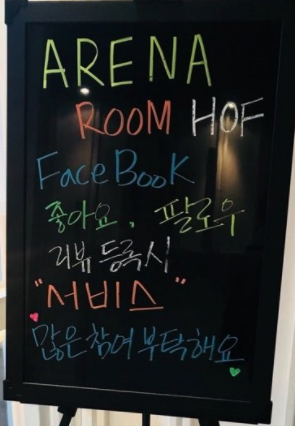 ARENA
ROOM HOF
FaceBook
좋아요, 팔로우
리뷰 등록시
"서비스"
많은 참여 부탁해요